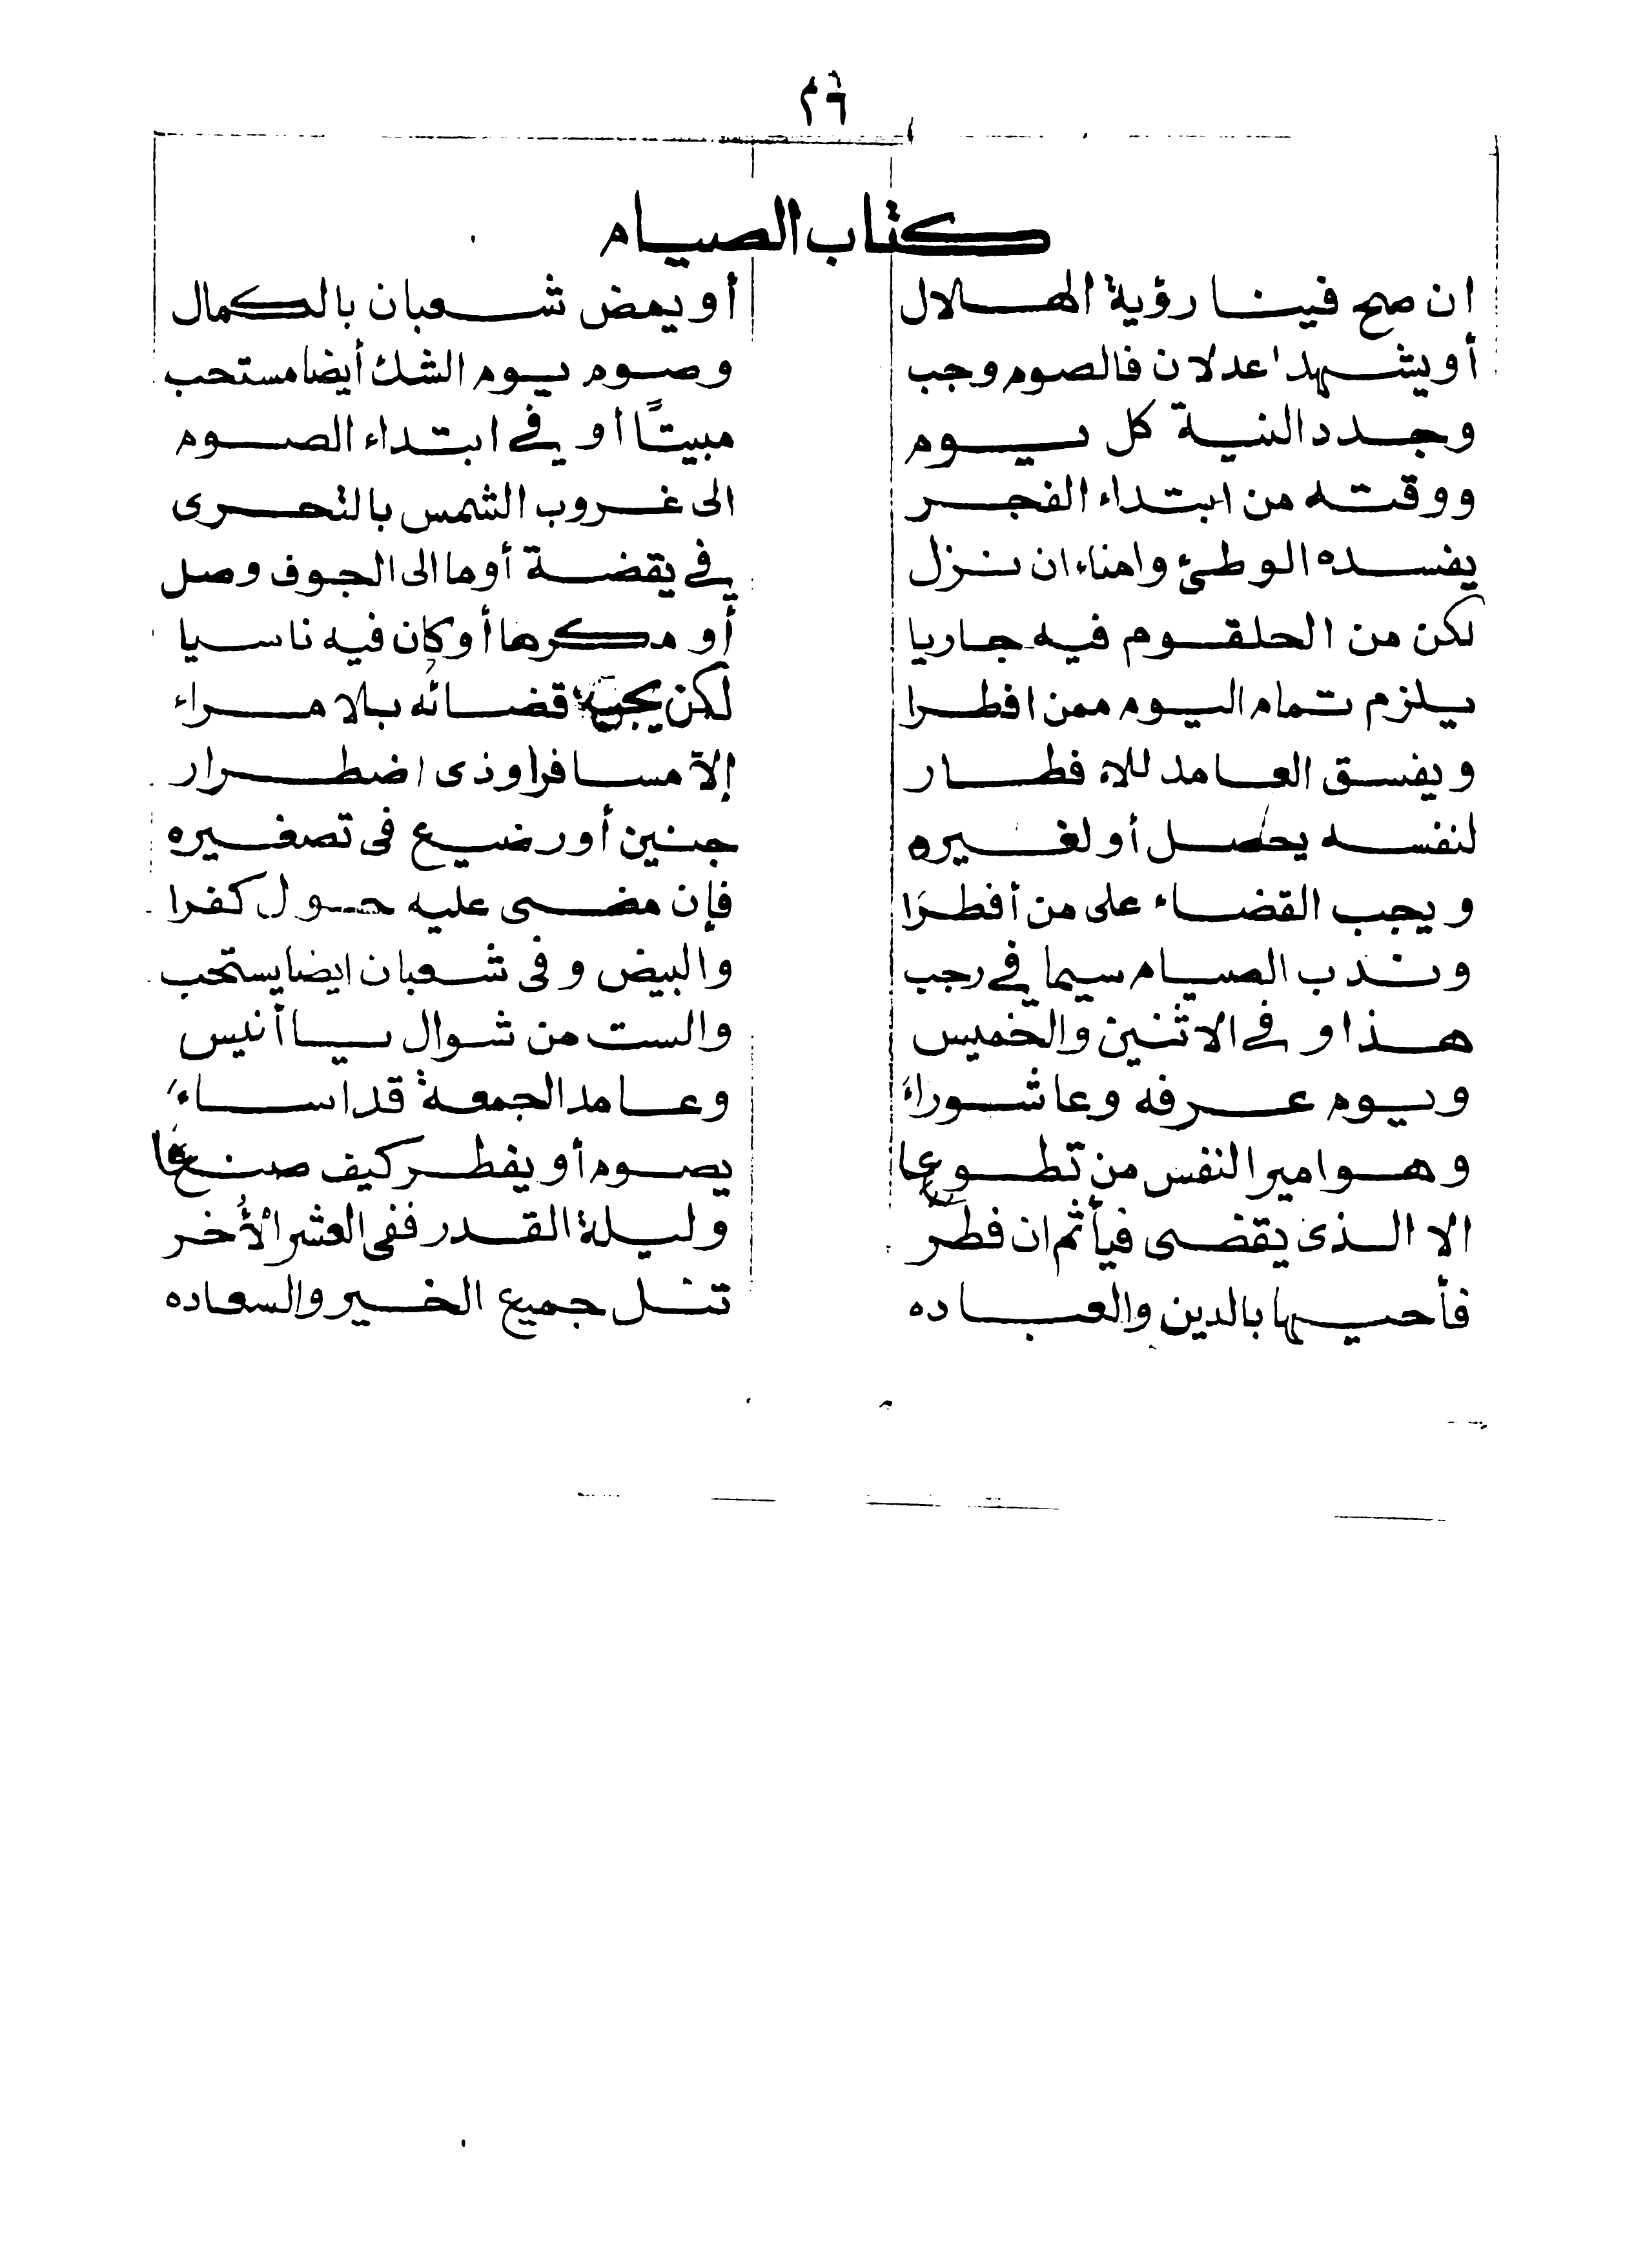 ٢٦
كتاب الصيام
ان صح فينا رؤية الهلال أو يمض شعبان بالكمال
أو يشهدا عدلان فالصوم وجب وصوم يوم الشك أيضا مستحب
وجدد النية كل يوم مبيتاً أو في ابتداء الصوم
ووقته من ابتداء الفجر الى غروب الشمس بالتحرى
يفسده الوطئ وامناء ان نزل في يقضة أو ما الى الجوف وصل
لكن من الحلقوم فيه جاريا أو مكرها أو كان فيه ناسيا
يلزم تمام اليوم ممن افطرا لكن يجب قضائه بلا مراء
ويفسق العامد للافطار إلا مسافرا وذى اضطرار
لنفسه يحصل أو لغيره جنين أو رضيع فى تصغيره
ويجب القضاء على من أفطرَا فإن مضى عليه حول كفرا
وندب الصيام سيما في رجب والبيض وفى شعبان ايضا يستحب
هذا و في الاثنين والخميس والست من شوال يا أنيس
ويوم عرفه وعاشوراءَ وعامد الجمعة قد اساءَ
وهو امير النفس من تطوعا يصوم أو يفطر كيف صنعا
الا الذى يقضى فيأثم ان فطر وليلة القدر ففى العشر الأُخر
فأحيها بالدين والعباده تنل جميع الخير والسعاده